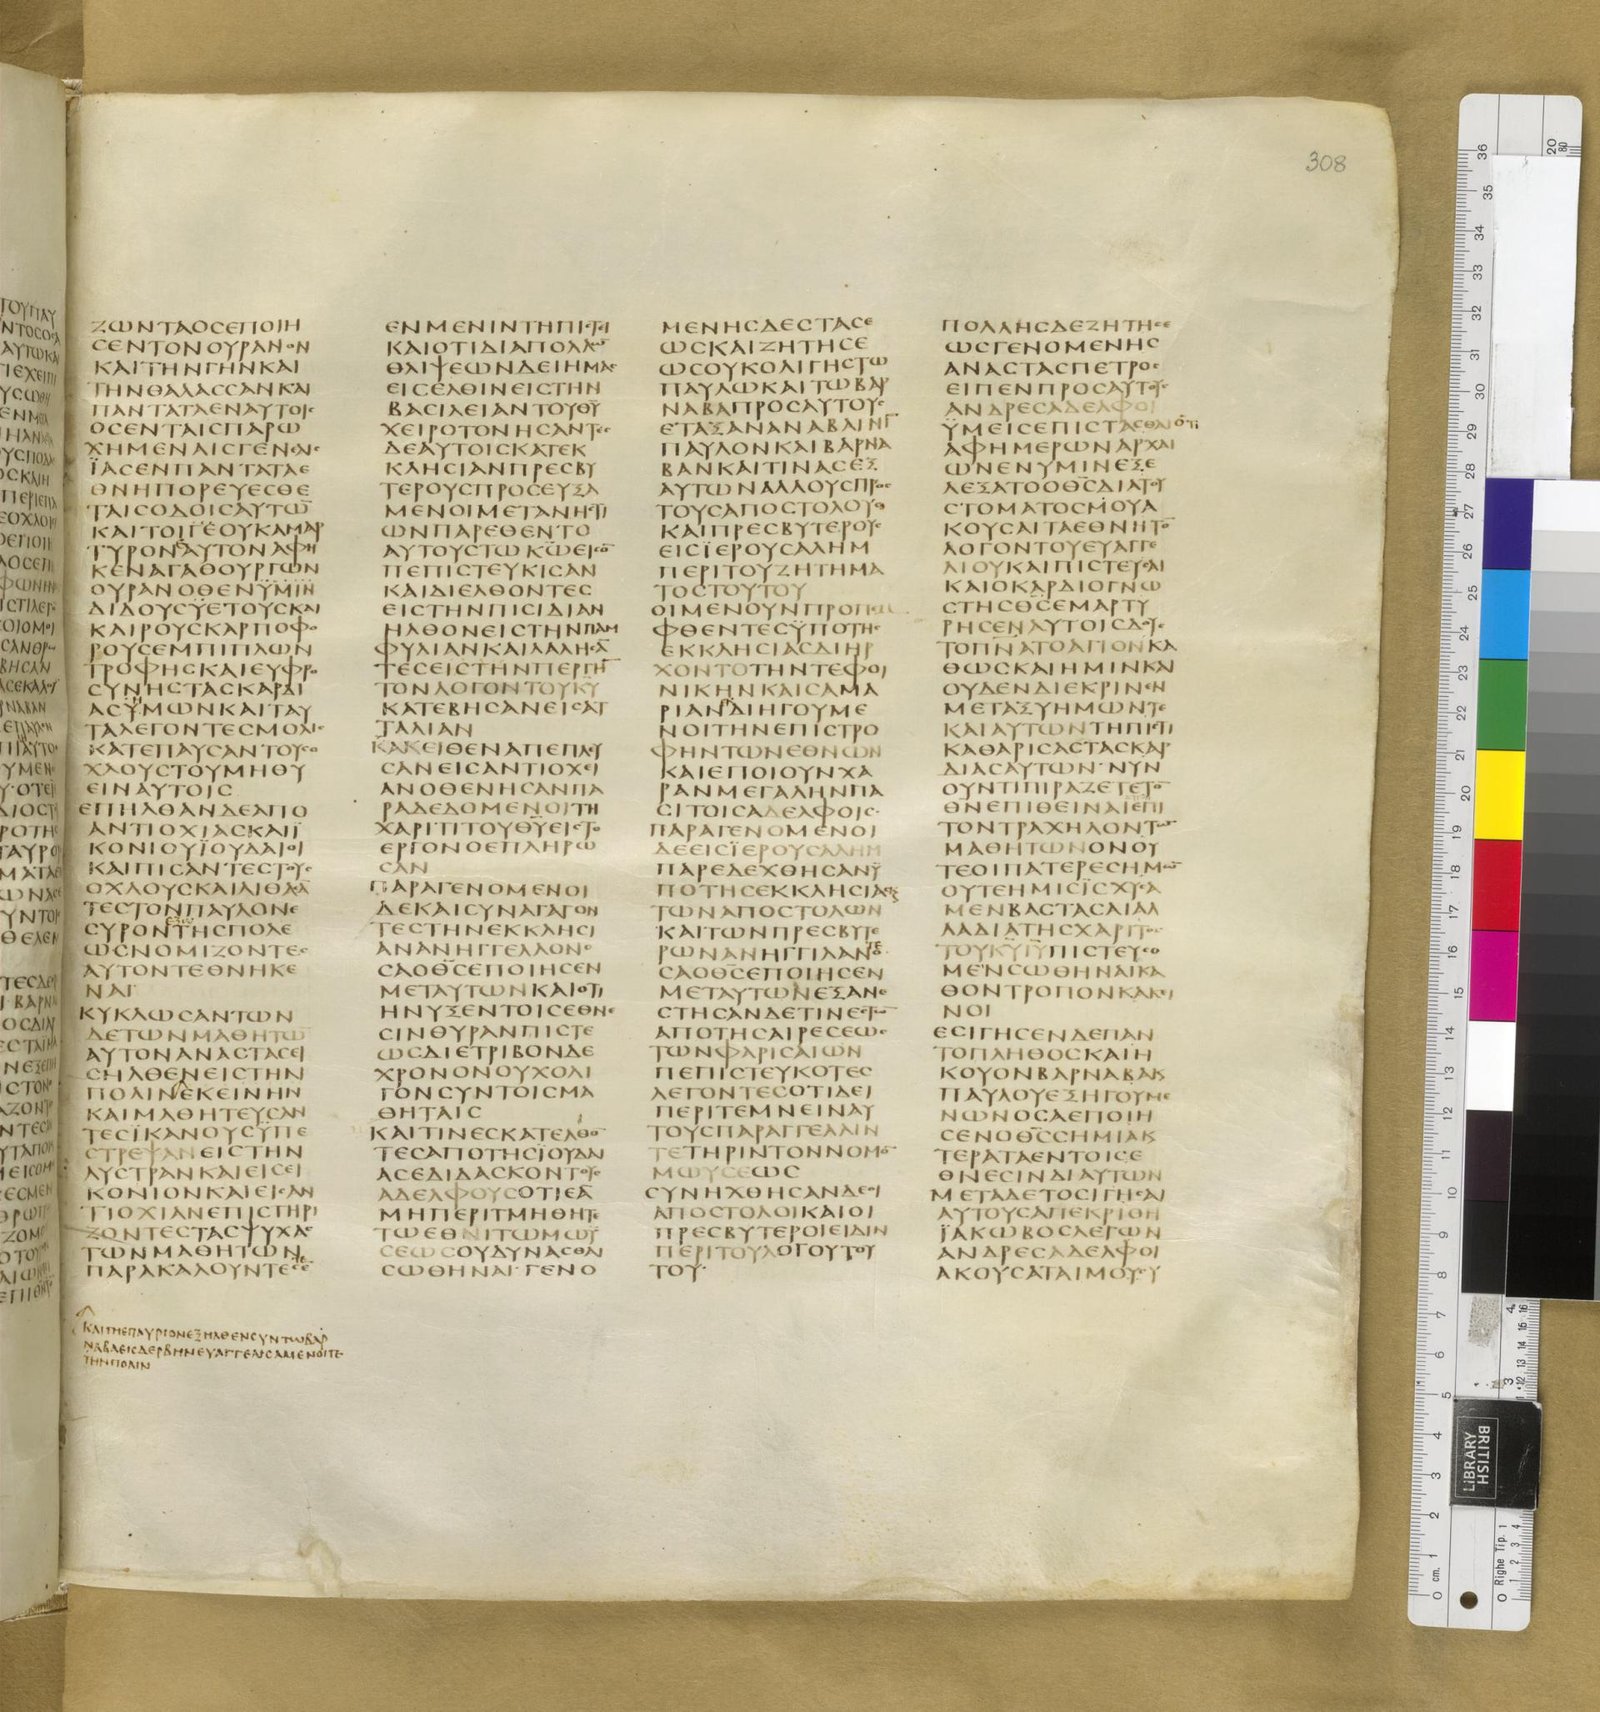 308
ΖΩΝΤΑΟCΕΠΟΙΗ
CΕΝΤΟΝΟΥΡΑΝΟΝ
ΚΑΙΤΗΝΓΗΝΚΑΙ
ΤΗΝΘΑΛΑCCΑΝΚΑΙ
ΠΑΝΤΑΤΑΕΝΑΥΤΟΙC
ΟCΕΝΤΑΙCΠΑΡΩ
ΧΗΜΕΝΑΙCΓΕΝΕΑΙC
ΪΑCΕΝΠΑΝΤΑΤΑΕ
ΘΝΗΠΟΡΕΥΕCΘΕ
ΤΑΙCΟΔΟΙCΑΥΤΩ̅
ΚΑΙΤΟΙΓΕΟΥΚΑΜΑΡ
ΤΥΡΟΝΑΥΤΟΝΑΦΗ
ΚΕΝΑΓΑΘΟΥΡΓΩΝ
ΟΥΡΑΝΟΘΕΝΫΜΙΝ
ΔΙΔΟΥCΫΕΤΟΥCΚΑΙ
ΚΑΙΡΟΥCΚΑΡΠΟΦΟ
ΡΟΥCΕΜΠΙΠΛΩΝ
ΤΡΟΦΗCΚΑΙΕΥΦΡΟ
CΥΝΗCΤΑCΚΑΡΔΙ
ΑCΫΜΩΝΚΑΙΤΑΥ
ΤΑΛΕΓΟΝΤΕCΜΟΛΙC
ΚΑΤΕΠΑΥCΑΝΤΟΥCΟ
ΧΛΟΥCΤΟΥΜΗΘΥ
ΕΙΝΑΥΤΟΙC
ΕΠΗΛΘΑΝΔΕΑΠΟ
ΑΝΤΙΟΧΙΑCΚΑΙΪ
ΚΟΝΙΟΥΪΟΥΔΑΙΟΙ
ΚΑΙΠΙCΑΝΤΕCΤΟΥC
ΟΧΛΟΥCΚΑΙΛΙΘΑCΑ̅
ΤΕCΤΟΝΠΑΥΛΟΝΕ
CΥΡΟΝΤΗCΠΟΛΕ
ΩCΝΟΜΙΖΟΝΤΕC
ΑΥΤΟΝΤΕΘΝΗΚΕ
ΝΑΙ
ΚΥΚΛΩCΑΝΤΩΝ
ΔΕΤΩΝΜΑΘΗΤΩ̅
ΑΥΤΟΝΑΝΑCΤΑCΕΙ
CΗΛΘΕΝΕΙCΤΗΝ
ΠΟΛΙΝΕΚΕΙΝΗΝ
ΚΑΙΜΑΘΗΤΕΥCΑΝ
ΤΕCΪΚΑΝΟΥCΫΠΕ
CΤΡΕΨΑΝΕΙCΤΗΝ
ΛΥCΤΡΑΝΚΑΙΕΙCΕΙ
ΚΟΝΙΟΝΚΑΙΕΙCΑΝ
ΤΙΟΧΙΑΝΕΠΙCΤΗΡΙ
ΖΟΝΤΕCΤΑCΨΥΧΑC
ΤΩΝΜΑΘΗΤΩΝ
ΠΑΡΑΚΑΛΟΥΝΤΕCΕ
ΚΑΙΤΗΕΠΑΥΡΙΟΝΕΞΗΛΘΕΝCΥΝΤΩΒΑΡ
ΝΑΒΑΕΙCΔΕΡΒΗΝΕΥΑΓΓΕΛΙCΑΜΕΝΟΙΤΕ
ΤΗΝΠΟΛΙΝ
ΕΝΜΕΝΙΝΤΗΠΙCΤΙ
ΚΑΙΟΤΙΔΙΑΠΟΛΛΩ̅
ΘΛΙΨΕΩΝΔΕΙΗΜΑC
ΕΙCΕΛΘΙΝΕΙCΤΗΝ
ΒΑCΙΛΕΙΑΝΤΟΥΘΥ̅
ΧΕΙΡΟΤΟΝΗCΑΝΤΕC
ΔΕΑΥΤΟΙCΚΑΤΕΚ
ΚΛΗCΙΑΝΠΡΕCΒΥ
ΤΕΡΟΥCΠΡΟCΕΥΞΑ
ΜΕΝΟΙΜΕΤΑΝΗCΤΙ
ΩΝΠΑΡΕΘΕΝΤΟ
ΑΥΤΟΥCΤΩΚΩ̅ΕΙCΟ̅
ΠΕΠΙCΤΕΥΚΙCΑΝ
ΚΑΙΔΙΕΛΘΟΝΤΕC
ΕΙCΤΗΝΠΙCΙΔΙΑΝ
ΗΛΘΟΝΕΙCΤΗΝΠΑΜ
ΦΥΛΙΑΝΚΑΙΛΑΛΗCΑ̅
ΤΕCΕΙCΤΗΝΠΕΡΓΗ̅
ΤΟΝΛΟΓΟΝΤΟΥΚΥ̅
ΚΑΤΕΒΗCΑΝΕΙCΑΤ
ΤΑΛΙΑΝ
ΚΑΚΕΙΘΕΝΑΠΕΠΛΕΥ
CΑΝΕΙCΑΝΤΙΟΧΕΙ
ΑΝΟΘΕΝΗCΑΝΠΑ
ΡΑΔΕΔΟΜΕΝΟΙΤΗ
ΧΑΡΙΤΙΤΟΥΘΥ̅ΕΙCΤΟ
ΕΡΓΟΝΟΕΠΛΗΡΩ
CΑΝ
ΠΑΡΑΓΕΝΟΜΕΝΟΙ
ΔΕΚΑΙCΥΝΑΓΑΓΟΝ
ΤΕCΤΗΝΕΚΚΛΗCΙ
ΑΝΑΝΗΓΓΕΛΛΟΝΟ
CΑΟΘC̅ΕΠΟΙΗCΕΝ
ΜΕΤΑΥΤΩΝΚΑΙΟΤΙ
ΗΝΥΞΕΝΤΟΙCΕΘΝΕ
CΙΝΘΥΡΑΝΠΙCΤΕ
ΩCΔΙΕΤΡΙΒΟΝΔΕ
ΧΡΟΝΟΝΟΥΧΟΛΙ
ΓΟΝCΥΝΤΟΙCΜΑ
ΘΗΤΑΙC
ΚΑΙΤΙΝΕCΚΑΤΕΛΘΟ̅
ΤΕCΑΠΟΤΗCΪΟΥΔΑΙ
ΑCΕΔΙΔΑCΚΟΝΤΟΥC
ΑΔΕΛΦΟΥCΟΤΙΕΑ̅
ΜΗΠΕΡΙΤΜΗΘΗΤΕ
ΤΩΕΘΝΙΤΩΜΩΫ
CΕΩCΟΥΔΥΝΑCΘΑΙ
CΩΘΗΝΑΙ·ΓΕΝΟ
ΜΕΝΗCΔΕCΤΑCΕ
ΩCΚΑΙΖΗΤΗCΕ
ΩCΟΥΚΟΛΙΓΗCΤΩ
ΠΑΥΛΩΚΑΙΤΩΒΑΡ
ΝΑΒΑΠΡΟCΑΥΤΟΥC
ΕΤΑΞΑΝΑΝΑΒΑΙΝΙ̅
ΠΑΥΛΟΝΚΑΙΒΑΡΝΑ
ΒΑΝΚΑΙΤΙΝΑCΕΞ
ΑΥΤΩΝΑΛΛΟΥCΠΡΟC
ΤΟΥCΑΠΟCΤΟΛΟΥC
ΚΑΙΠΡΕCΒΥΤΕΡΟΥC
ΕΙCΪΕΡΟΥCΑΛΗΜ
ΠΕΡΙΤΟΥΖΗΤΗΜΑ
ΤΟCΤΟΥΤΟΥ
ΟΙΜΕΝΟΥΝΠΡΟΠΕΜ
ΦΘΕΝΤΕCΫΠΟΤΗC
ΕΚΚΛΗCΙΑCΔΙΗΡ
ΧΟΝΤΟΤΗΝΤΕΦΟΙ
ΝΙΚΗΝΚΑΙCΑΜΑ
ΡΙΑΝΔΙΗΓΟΥΜΕ
ΝΟΙΤΗΝΕΠΙCΤΡΟ
ΦΗΝΤΩΝΕΘΝΩΝ
ΚΑΙΕΠΟΙΟΥΝΧΑ
ΡΑΝΜΕΓΑΛΗΝΠΑ
CΙΤΟΙCΑΔΕΛΦΟΙC·
ΠΑΡΑΓΕΝΟΜΕΝΟΙ
ΔΕΕΙCΪΕΡΟΥCΑΛΗΜ
ΠΑΡΕΔΕΧΘΗCΑΝΫ
ΠΟΤΗCΕΚΚΛΗCΙΑC
ΤΩΝΑΠΟCΤΟΛΩΝ
ΚΑΙΤΩΝΠΡΕCΒΥΤΕ
ΡΩΝΑΝΗΓΓΙΛΑΝΟ
CΑΟΘC̅ΕΠΟΙΗCΕΝ
ΜΕΤΑΥΤΩΝΕΞΑΝΕ
CΤΗCΑΝΔΕΤΙΝΕCΤΩ̅
ΑΠΟΤΗCΑΙΡΕCΕΩC
ΤΩΝΦΑΡΙCΑΙΩΝ
ΠΕΠΙCΤΕΥΚΟΤΕC
ΛΕΓΟΝΤΕCΟΤΙΔΕΙ
ΠΕΡΙΤΕΜΝΕΙΝΑΥ
ΤΟΥCΠΑΡΑΓΓΕΛΛΙΝ
ΤΕΤΗΡΙΝΤΟΝΝΟΜΟ̅
ΜΩΥCΕΩC
CΥΝΗΧΘΗCΑΝΔΕΟΙ
ΑΠΟCΤΟΛΟΙΚΑΙΟΙ
ΠΡΕCΒΥΤΕΡΟΙΕΙΔΙΝ
ΠΕΡΙΤΟΥΛΟΓΟΥΤΟΥ
ΤΟΥ·
ΠΟΛΛΗCΔΕΖΗΤΗCΕ
ΩCΓΕΝΟΜΕΝΗC
ΑΝΑCΤΑCΠΕΤΡΟC
ΕΙΠΕΝΠΡΟCΑΥΤΟΥC
ΑΝΔΡΕCΑΔΕΛΦΟΙ
ΫΜΕΙCΕΠΙCΤΑCΘΑΙΟΤΙ
ΑΦΗΜΕΡΩΝΑΡΧΑΙ
ΩΝΕΝΥΜΙΝΕΞΕ
ΛΕΞΑΤΟΟΘC̅ΔΙΑΤΟΥ
CΤΟΜΑΤΟCΜΟΥΑ
ΚΟΥCΑΙΤΑΕΘΝΗΤΟ̅
ΛΟΓΟΝΤΟΥΕΥΑΓΓΕ
ΛΙΟΥΚΑΙΠΙCΤΕΥCΑΙ
ΚΑΙΟΚΑΡΔΙΟΓΝΩ
CΤΗCΘC̅ΕΜΑΡΤΥ
ΡΗCΕΝΑΥΤΟΙCΔΟΥC
ΤΟΠΝΑΤΟΑΓΙΟΝΚΑ
ΘΩCΚΑΙΗΜΙΝΚΑΙ
ΟΥΔΕΝΔΙΕΚΡΙΝΕΝ
ΜΕΤΑΞΥΗΜΩΝΤΕ
ΚΑΙΑΥΤΩΝΤΗΠΙCΤΙ
ΚΑΘΑΡΙCΑCΤΑCΚΑΡ
ΔΙΑCΑΥΤΩΝ·ΝΥΝ
ΟΥΝΤΙΠΙΡΑΖΕΤΕΤΟ̅
ΘΝ̅ΕΠΙΘΕΙΝΑΙΕΠΙ
ΤΟΝΤΡΑΧΗΛΟΝΤΩ̅
ΜΑΘΗΤΩΝΟΝΟΥ
ΤΕΟΙΠΑΤΕΡΕCΗΜΩ̅
ΟΥΤΕΗΜΙCΪCΧΥCΑ
ΜΕΝΒΑCΤΑCΑΙΑΛ
ΛΑΔΙΑΤΗCΧΑΡΙΤΟC
ΤΟΥΚΥ̅ΙΥ̅ΠΙCΤΕΥΟ
ΜΕΝCΩΘΗΝΑΙΚΑ
ΘΟΝΤΡΟΠΟΝΚΑΚΕΙ
ΝΟΙ
ΕCΙΓΗCΕΝΔΕΠΑΝ
ΤΟΠΛΗΘΟCΚΑΙΗ
ΚΟΥΟΝΒΑΡΝΑΒΑΚ
ΠΑΥΛΟΥΕΞΗΓΟΥΜΕ
ΝΩΝΟCΑΕΠΟΙΗ
CΕΝΟΘC̅CΗΜΙΑΚ
ΤΕΡΑΤΑΕΝΤΟΙCΕ
ΘΝΕCΙΝΔΙΑΥΤΩΝ
ΜΕΤΑΔΕΤΟCΙΓΗCΑΙ
ΑΥΤΟΥCΑΠΕΚΡΙΘΗ
ΪΑΚΩΒΟCΛΕΓΩΝ
ΑΝΔΡΕCΑΔΕΛΦΟΙ
ΑΚΟΥCΑΤΑΙΜΟΥCΥ
BRITISH
LIBRARY